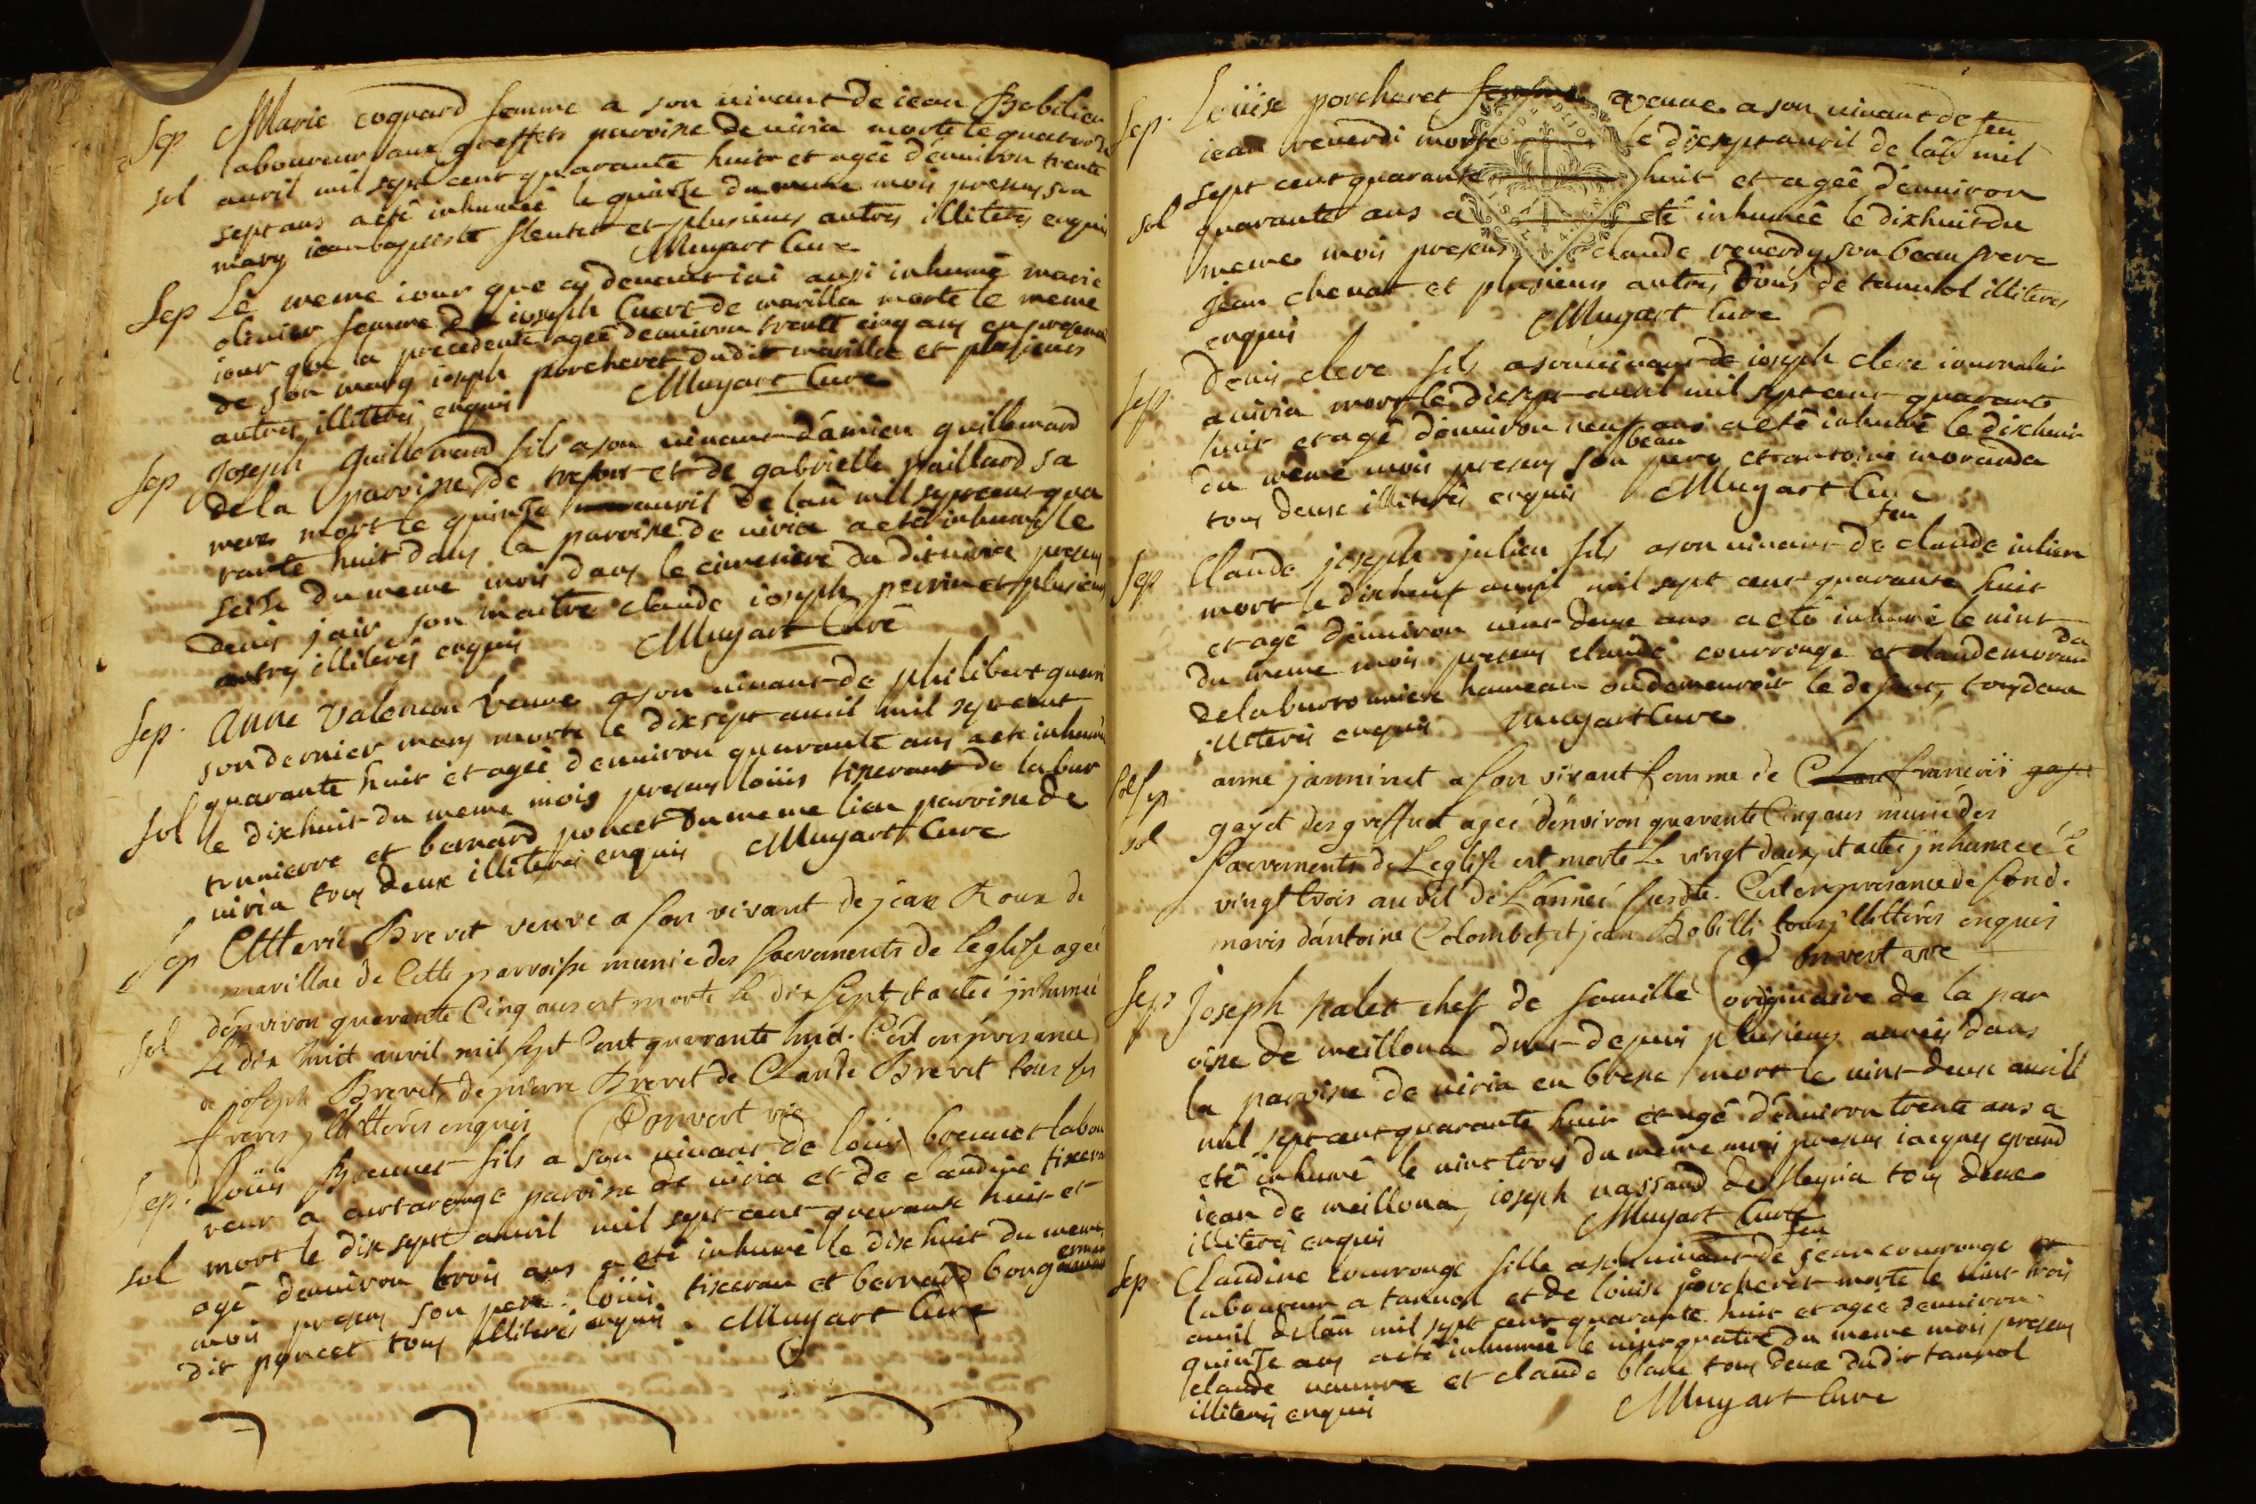 Sep Marie coquard femme a son vivant de iean Bobilier
laboureur aux greffets paroisse de viria morte le quatorze
sol avril mil sept cent quarante huit et agée d'environ trente
sept ans a eté inhumée le quinze du meme mois presens son
mary iean baptiste et plusieurs autres illiterés enquis
Muyart Cure
Sep Le meme iour que cy devant iai ausi inhumé marie
olivier femme de ioseph Cuert de marilla morte le meme
iour que la precedente agée d'environ trente cinq ans en presence
de son mary ioseph porcheret dudit marilla et plusieurs
autres illiterés enquis Muyart Cure
Sep Joseph Guillemard fils a son vivant d'amien guillemard
de la paroisse de tresfort et de gabrielle paillard sa
mere mort le quinze avril de lan mil sept cent qua
rante huit dans la paroise de viria a eté inhumé le
seise du meme mois dans le cimetiere du dit viria presens
denis jair son maitre claude ioseph perrin et plusieurs
autres illiterés enquis Muyart Curé
Sep. Anne Valencon veuve a son vivant de philibert
son dernier mary morte le dixsept avril mil sept cent
quarante huit et agée d'environ quarante ans a eté inhumée
sol le dixhuit du meme mois presens loüis tiserant de la bur
tonnierre et bernard poncet du meme lieu paroisse de
viria tous deux illiterés enquis Muyart Cure
Sep Brevet veuve a son vivant de jean Roux de
marillac de Cette parroisse munie des sacrements de leglise agée
denviron quarante Cinq ans est morte le dix sept et a étée jnhumée
sol Le dix huit avril mil sept Cent quarante huit. C'est en présence
de joseph Brevet, de pierre Brevet de Claude Brevet tous ses
freres jllittérés enquis Convert vic
Sep. Loüis Brennet fils a son vivant de loüis brennet labou
reur a curtarenge paroisse de viria et de claudine tiseran
sol mort le dix sept avril mil sept cent quarante huit et
agé d'environ trois ans a eté inhumé le dix huit du meme
mois presens son pere. loüis tiseran et bernard
dit poncet tous illiterés enquis. Muyart Cure
Sep. Loüise porcheret femme veuve a son vivant de feu
iean reverdi morte le dixsept avril de lan mil
sept cent quarante huit et agée d'environ
sol quarante ans a eté inhumée le dixhuit du
meme mois presens claude reverdy son beau frere
jean chenat et plusieurs autres tous de tannol illiteres
enquis Muyart Cure
Sep. Denis clerc fils a son vivant de ioseph clerc iournalier
a viria mort le dixsept avril mil sept cent quarante
huit et agé d'environ neuf ans a eté inhumé le dixhuit
du meme mois presens son beau pere et antoine moranda
tous deux illiterés enquis Muyart Cure
Sep Claude joseph julien fils a son vivant de feu claude iulien
mort le dixneuf avril mil sept cent quarante huit
et agé d'environ vint deux ans a eté inhumé le vint
du meme mois. presens claude courrouge et claude moranda
de la burtonniere hameau ou demeuroit le defunt, tous deux
illiterés enquis Muyart Cure
sol Sep anne janninet a son vivant femme de Clau francois gaye
sol gayet des greffet agée d'environ quarante Cinq ans munie des
sacrements de Leglise est morte Le vingt deux, et a étée jnhumée Le
vingt trois avril de L'année susdte. C'est en presance de son d.
maris d'antoine Colombet, et jean Bobilli tous jllittérés enquis
Convert vic
Sep Joseph palet chef de famille originaire de la par
oisse de meillona depuis plusieurs années dans
la paroisse de viria en bresse mort le vint deux avrill
mil sept cent quarante huit et agé d'environ trente ans a
eté inhumé le vint trois du meme mois presens iacques grand
iean de meillona, ioseph vassand de fleyria tous deux
illiterés enquis Muyart Cure
Sep. Claudine courrouge fille a son vivant de feu jean courrouge
laboureur a tannol et de loüise porcheret morte le vint trois
avril de lan mil sept cent quarante huit et agée d'environ
quinze ans a eté inhumée le vint quatre du meme mois presens
claude et claude blanc tous deux dudit tannol
illiterés enquis Muyart Cure